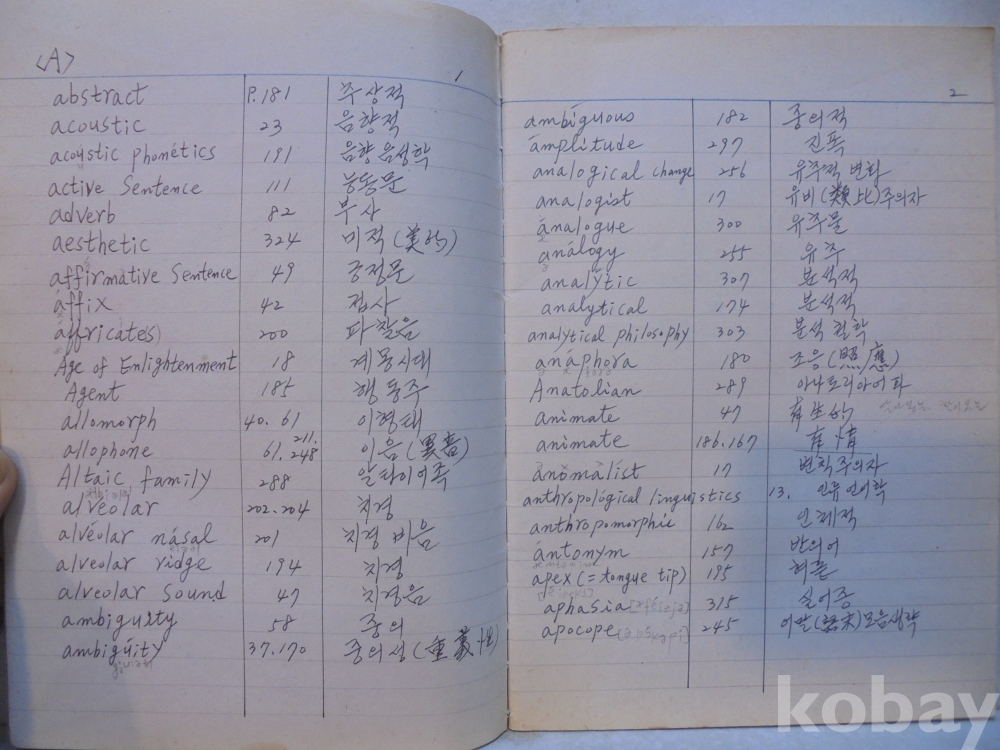 <A>
1
abstract P.181 추상적
acoustic 23 음향적
acoustic phonetics 191 음향 음성학
active Sentence 111 능동문
adverb 82 부사
aesthetic 324 미적(美的)
affirmative Sentence 49 긍정문
affix 42 접사
affricate(s) 200 파찰음
Age of Enlightenment 18 계몽시대
Agent 185 행동주
allomorph 40. 61 이형태
allophone 61. 211. 248 이음(異音)
Altaic family 288 알타이어족
alveolar 202. 204 치경
alveolar násal 201 치경 비음
alveolar ridge 194 치경
alveolar Sound 47 치경음
ambiguity 58 중의
ambiguity 37. 170 중의성(重義性)
2
ambiguous 182 중의적
amplitude 297 진폭
analogical change 256 유추적 변화
analogist 17 유비(類比)주의자
analogue 300 유추물
análogy 255 유추
analytic 307 분석적
analytical 174 분석적
analytical philosophy 303 분석 철학
anáphora 180 조응(照應)
Anatolian 289 아나토리아어파
animate 47 有生的
animate 186. 167 有情
anomalist 17 변칙주의자
anthropological linguistics 13. 인류언어학
anthropomorphic 162 인체적
ántonym 157 반의어
apex (= tongue tip) 195 혀끝
aphasia 315 실어증
apocope 245 어말(語末)모음생략
kobay